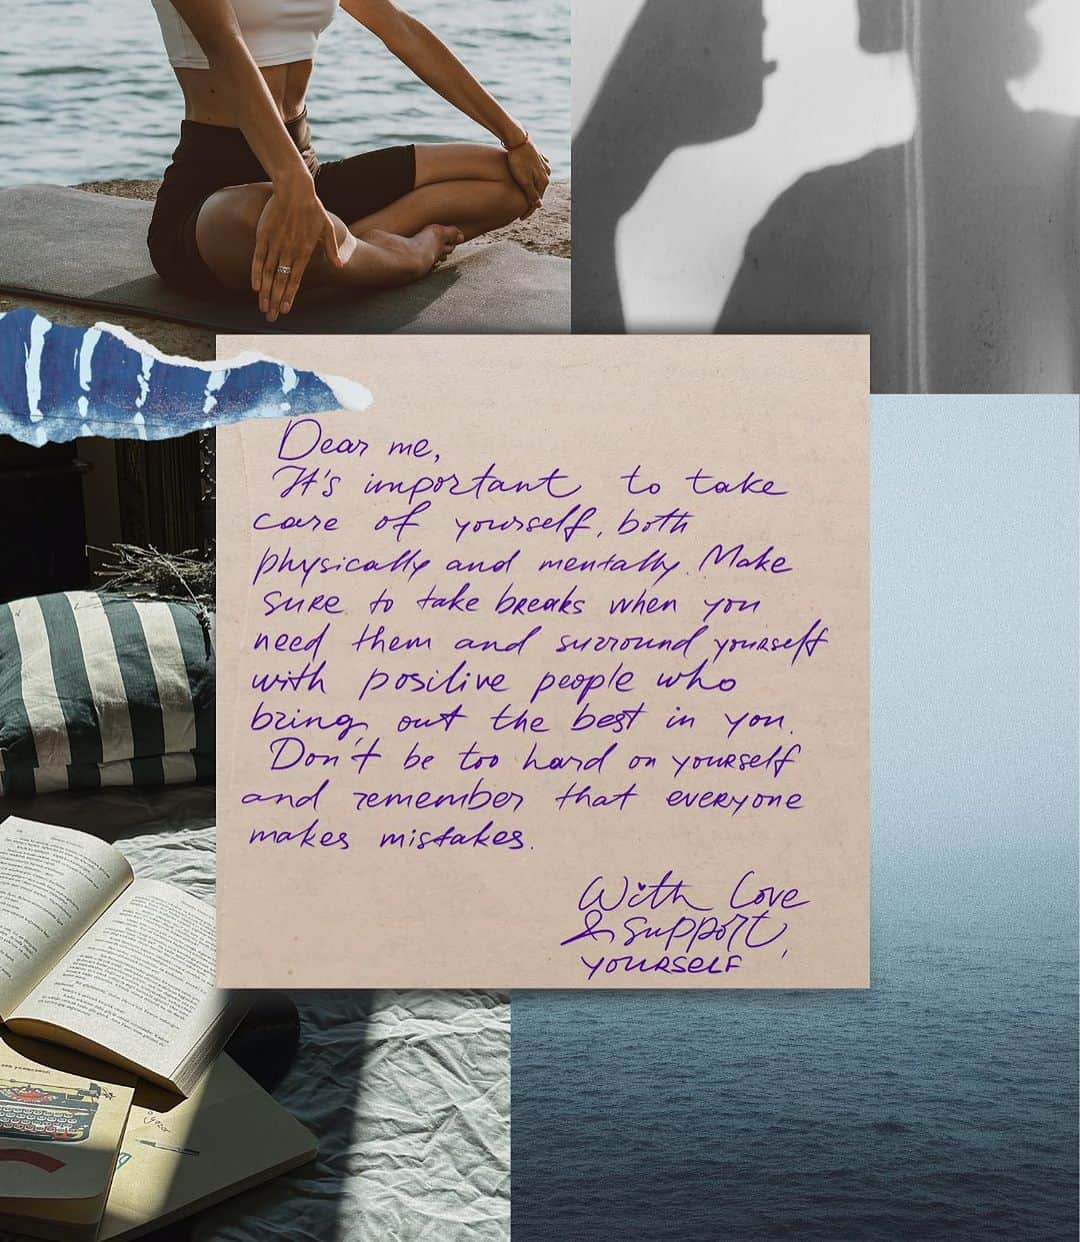 Dear me,
It's important to take
care of yourself, both
physically and mentally. Make
sure to take breaks when you
need them and surround yourself
with positive people who
bring out the best in you.
Don't be too hard on yourself
and remember that everyone
makes mistakes.
With Love
& support,
yourself